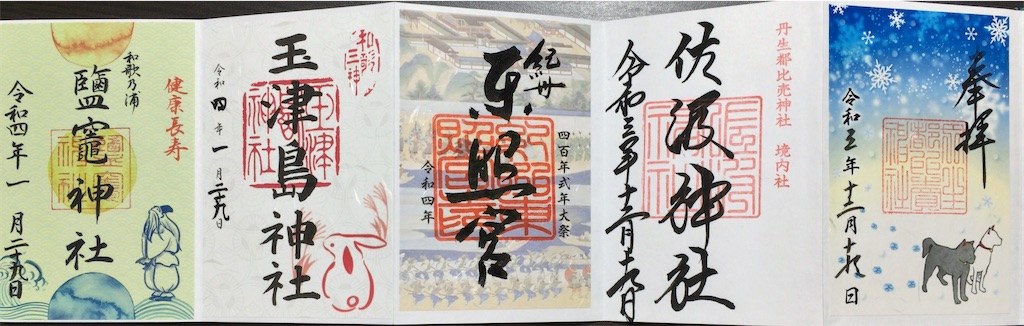 奉拝
令和三年十二月十九日
丹生都比売神社　境内社
佐波神社
令和三年十二月十九日
四百年式年大祭
紀州
東照宮
令和四年
和歌三神
玉津島神社
令和四年一月二十九日
健康長寿
和歌乃浦
鹽竈神社
令和四年一月二十九日